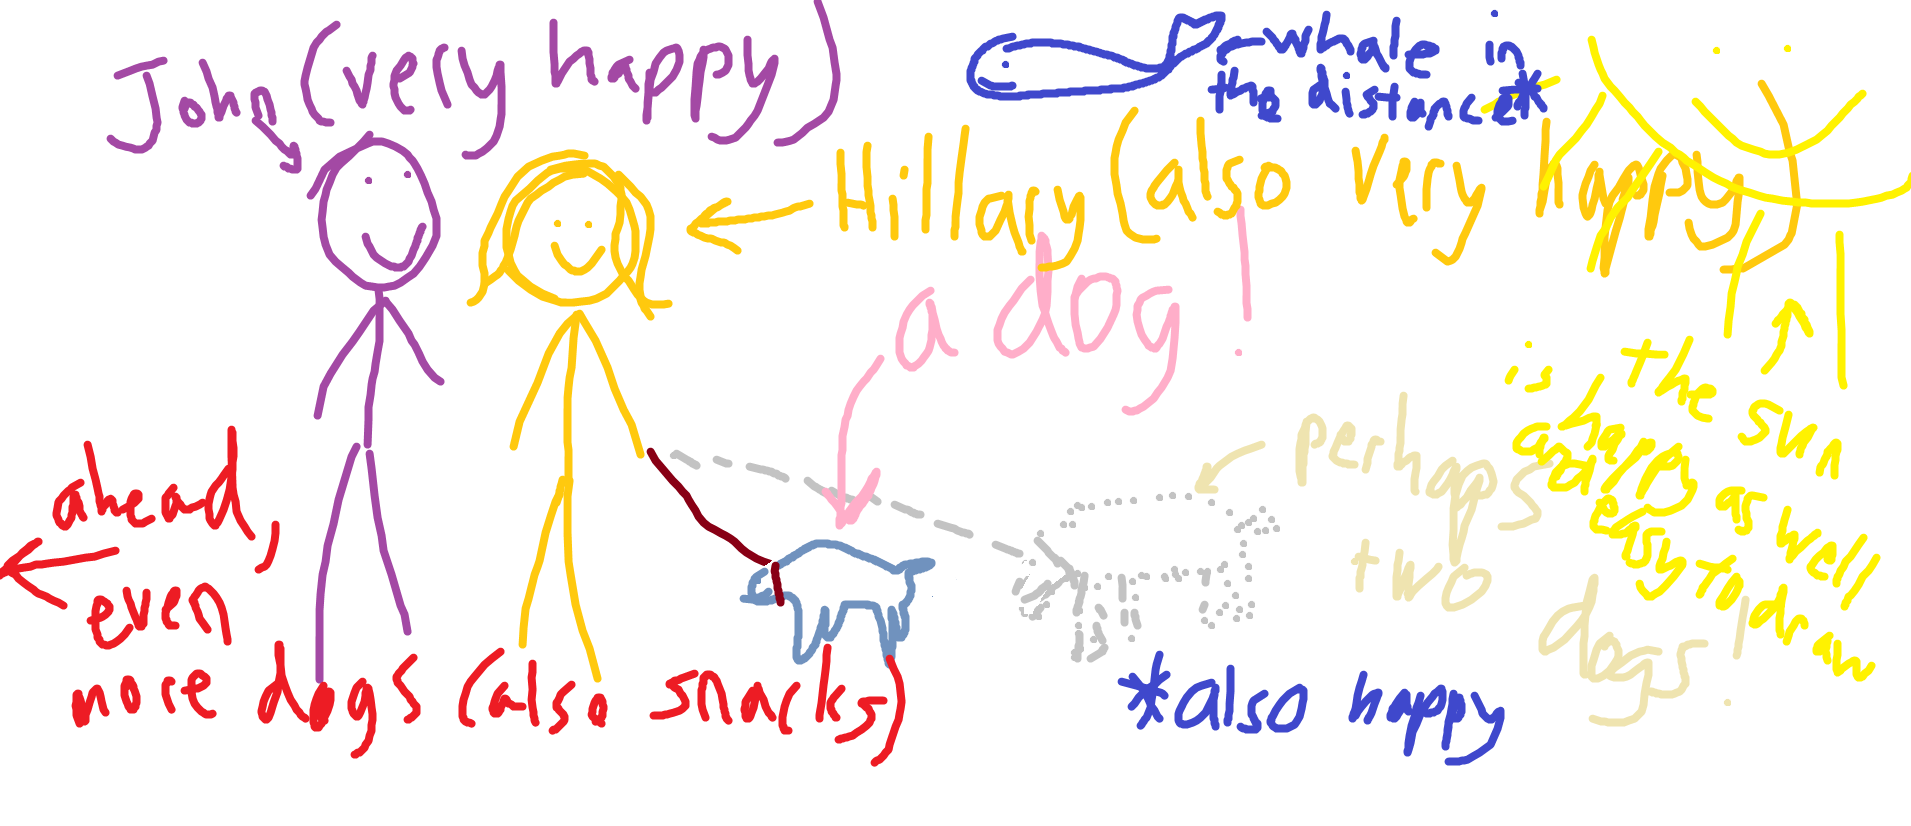 John (very happy)
whale in
the distance*
Hillary (also very happy)
a dog!
the sun
is happy as well
and easy to draw
perhaps
two
dogs!
ahead,
even
more dogs (also snacks)
*also happy